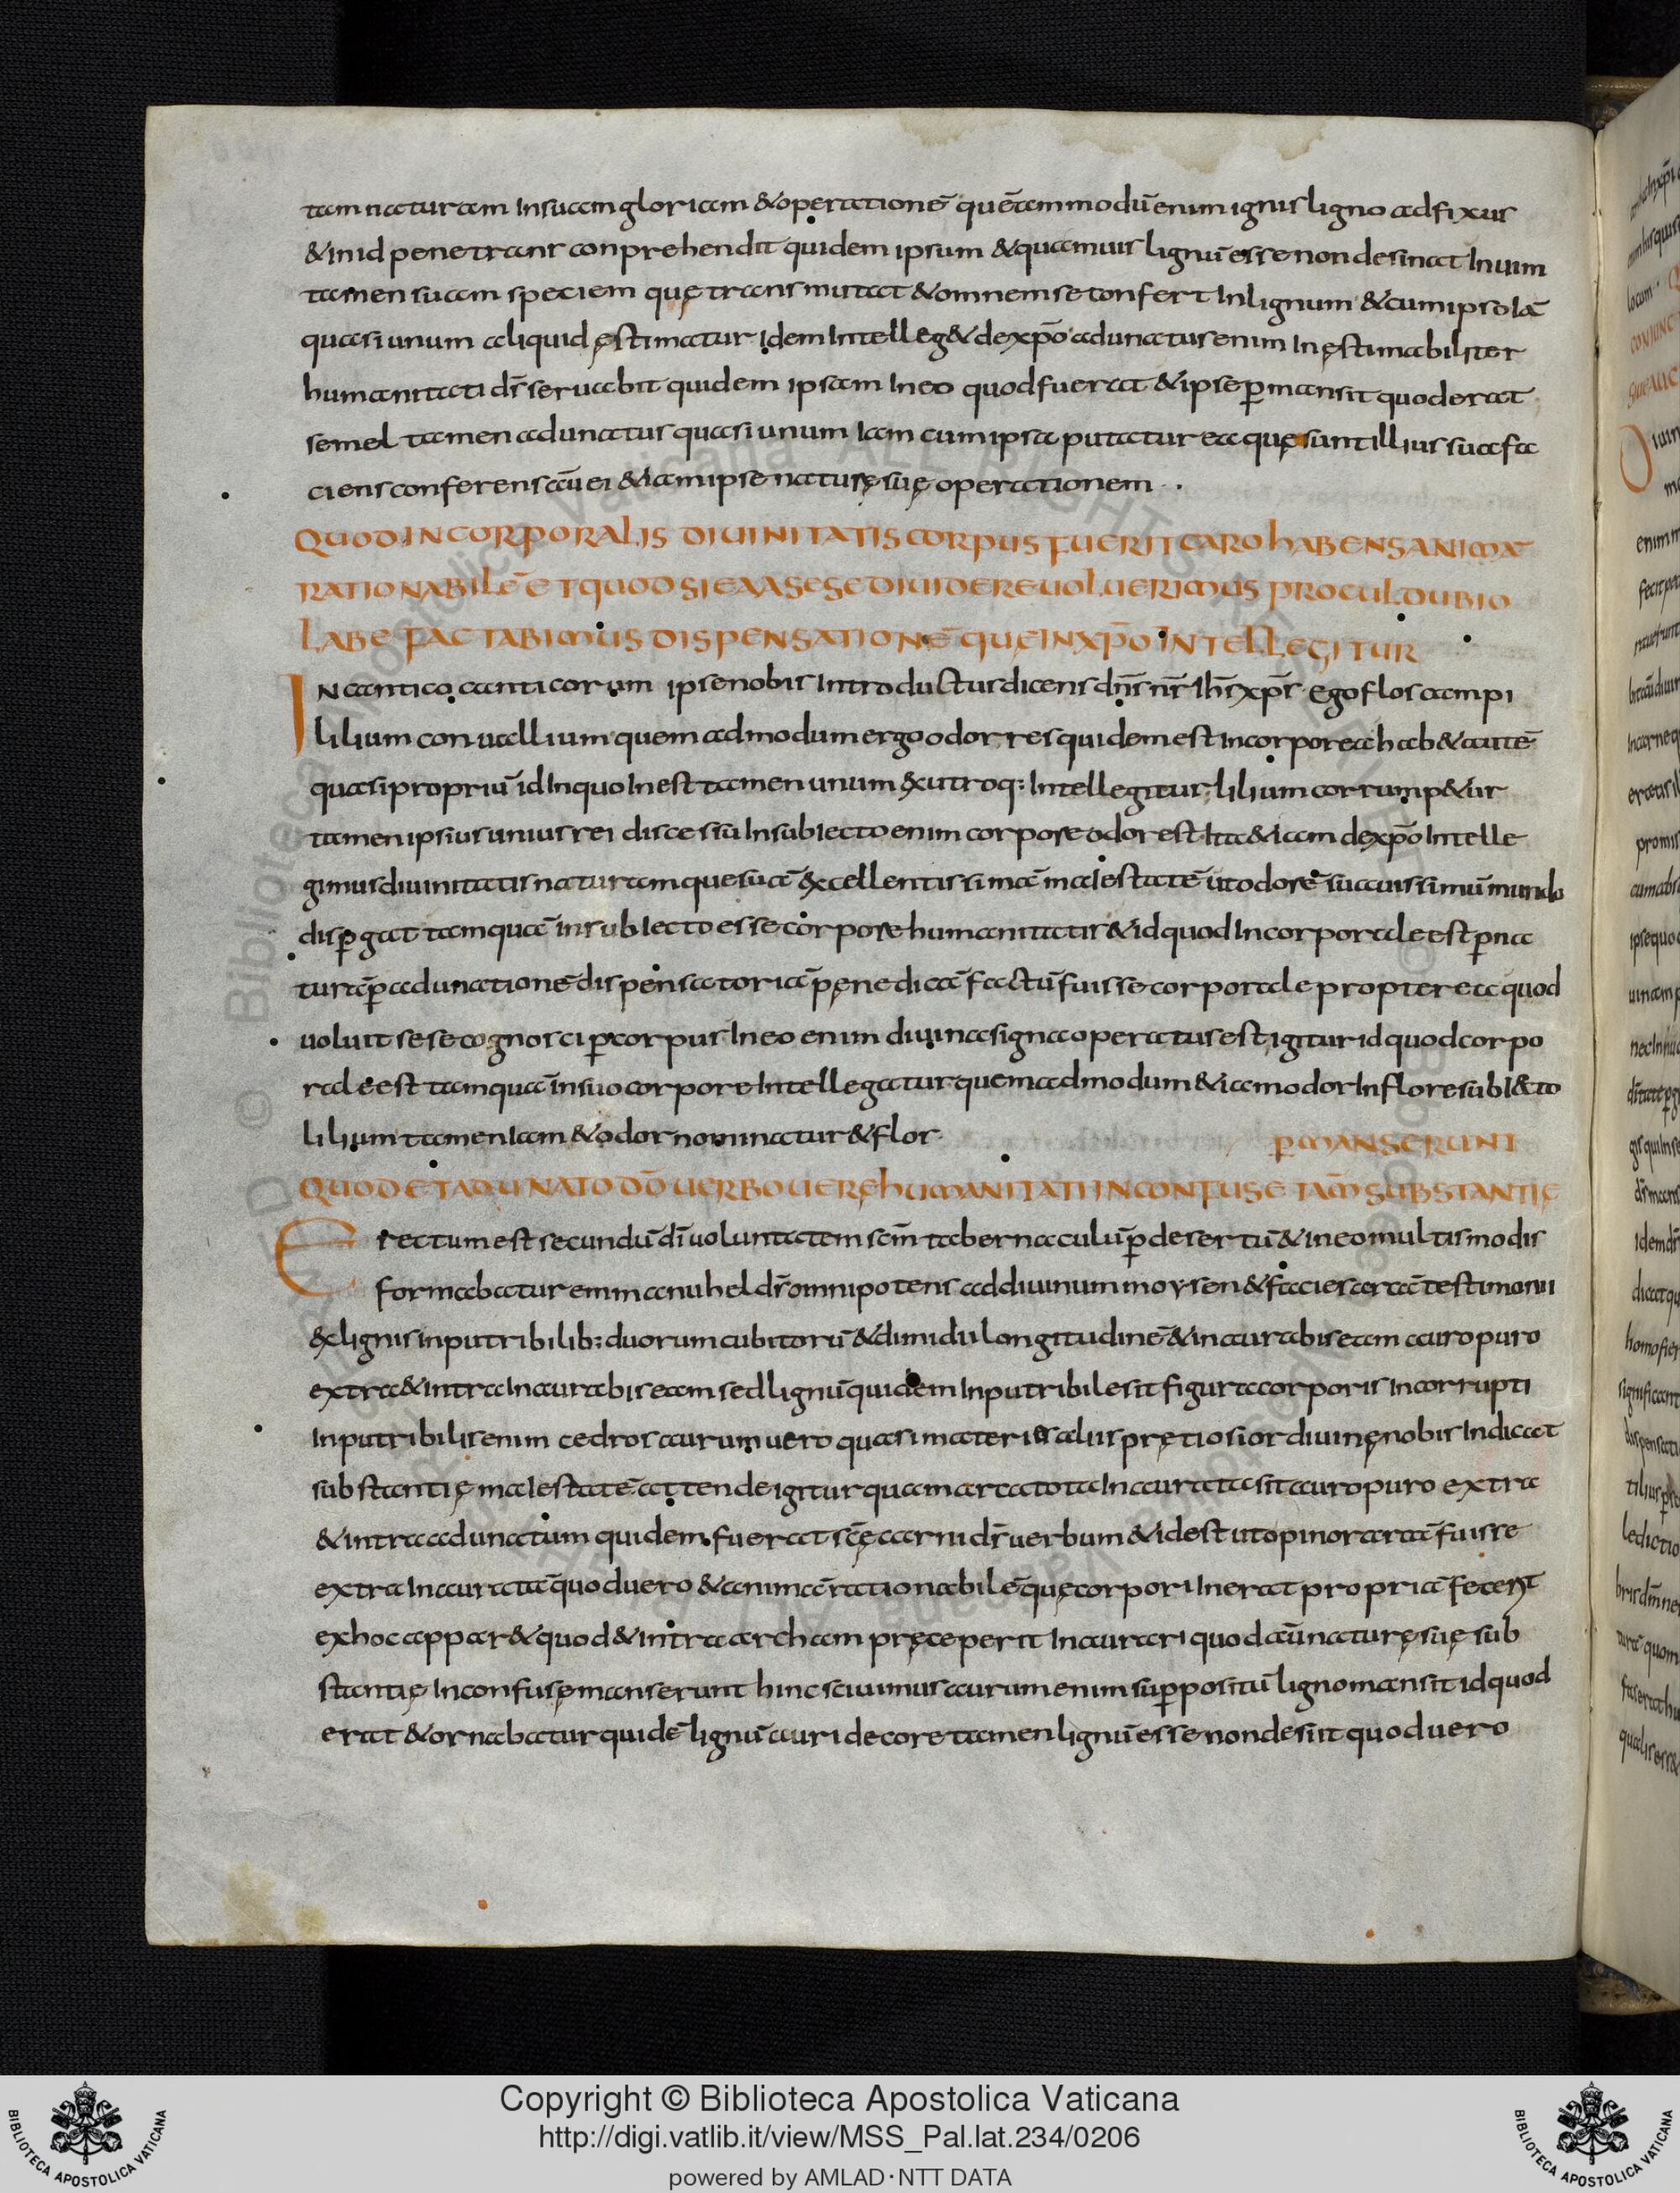 tam naturam Insuam gloriam &operationē quēammodū enim ignis ligno adfixus
&in id penetrans conprehendit quidem ipsum &quamuis lignū esse non desinat In uim
tamen suam speciem quę transmutat &omnem se confert In lignum &cum ipso Iā
quasi unum aliquid ęstimatur Idem Intelleg& de xp̄o adunatus enim In ęstimabiliter
humanitati d̄s seruabit quidem ipsam In eo quod fuerat &ipse p̱mansit quod erat
semel tamen adunatus quasi unum Iam cum ipsa putatur ea quę sunt illius sua fa
ciens conferens aū ei &iam ipse naturę suę operationem ·.
QUOD INCORPORALIS DIUINITATIS CORPUS FUERIT CARO HABENS ANIMĀ
RATIONABILĒ ET QUOD SI EXA SESE DIUIDERE UOLUERIMUS PROCUL DUBIO
LABEFACTABIMUS DISPENSATIONĒ QUE IN XP̄O INTELLEGITUR
IN cantico canticorum ipse nobis Introductus dicens dn̄s nr̄ ih̄s xp̄s Ego flos campi
lilium conuallium quem admodum ergo odor res quidem est Incorporea hab& autē
quasi propriū id In quo Inest tamen unum &utroq: Intellegitur lilium corrump&ur
tamen ipsius unius rei discessū In subIecto enim corpore odor est Ita &iam de xp̄o Intelle
gimus diuinitatis naturam que suā excellentissimā maIestatē ut odorē suauissimū mundo
disp̱gat tamquā in subIecto esse corpore humanitatis &id quod Incorporale est p̱ na
turā p̱ adunationē dispensatoriā pęne dicā factū fuisse corporale propterea quod
uoluit sese cognosci p̱ corpus In eo enim diuina signa operatus est igitur id quod corpo
rale est tamquā in suo corpore Intellegatur quemadmodum &iam odor In flore subI&to
lilium tamen Iam &odor nominatur &flos
P̱MANSERUNT
QUOD ET ADUNATO DŌ UERBO UERĘ HUMANITATI INCONFUSE TAM̄ SUBSTANTIĘ
Erectum est secundū dī uoluntatem scm̄ tabernaculū p̱ desertū &in eo multis modis
formabatur emmanuhel d̄s omnipotens ad diuinum moysen &facies arcā testimonii
&lignis inputribilib: duorum cubitorū &dimidii longitudinē &inaurabis eam auro puro
extra &intra Inaurabis eam sed lignū quidem Inputribile sit figura corporis Incorrupti
Inputribilis enim cedros aurum uero quasi materiis aliis prętiosior diuinę nobis Indicat
substantię maIestatē attende igitur quam arca tota Inaurata sit auro puro extra
&intra adunatum quidem fuerat scę carni d̄s uerbum &id est ut opinor arcā fuisse
extra Inauratā quod uero &animā rationabilē quę corpori Inerat propriā fecerit
ex hoc appar& quod &intra archam pręceperit Inaurari quod aū naturę suę sub
stantię Inconfusę manserunt hinc sciuimus aurum enim supp̱ositū ligno mansit id quod
erat &ornabatur quidē lignū auri decore tamen lignū esse non desiit quod uero
Copyright © Biblioteca Apostolica Vaticana
http://digi.vatlib.it/view/MSS_Pal.lat.234/0206
powered by AMLAD·NTT DATA